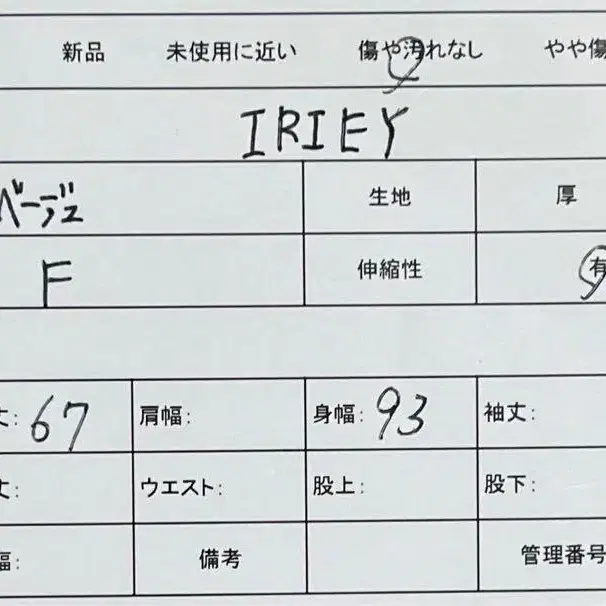 新品 未使用に近い 傷や汚れなし やや傷
IRIEY
ベージュ 生地 厚
F 伸縮性 有
丈: 67 肩幅: 身幅: 93 袖丈:
丈: ウエスト: 股上: 股下:
幅: 備考 管理番号